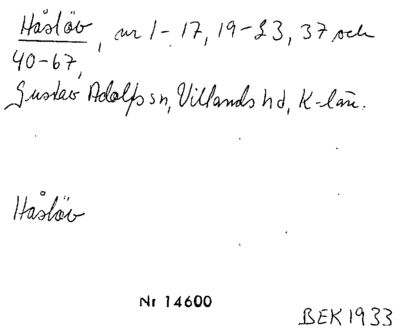 Håslöv, nr 1-17, 19-23, 37 och
40-67,
Gustav Adolfs sn, Villands hd, K-län.
Håslöv
Nr 14600
BEK1933